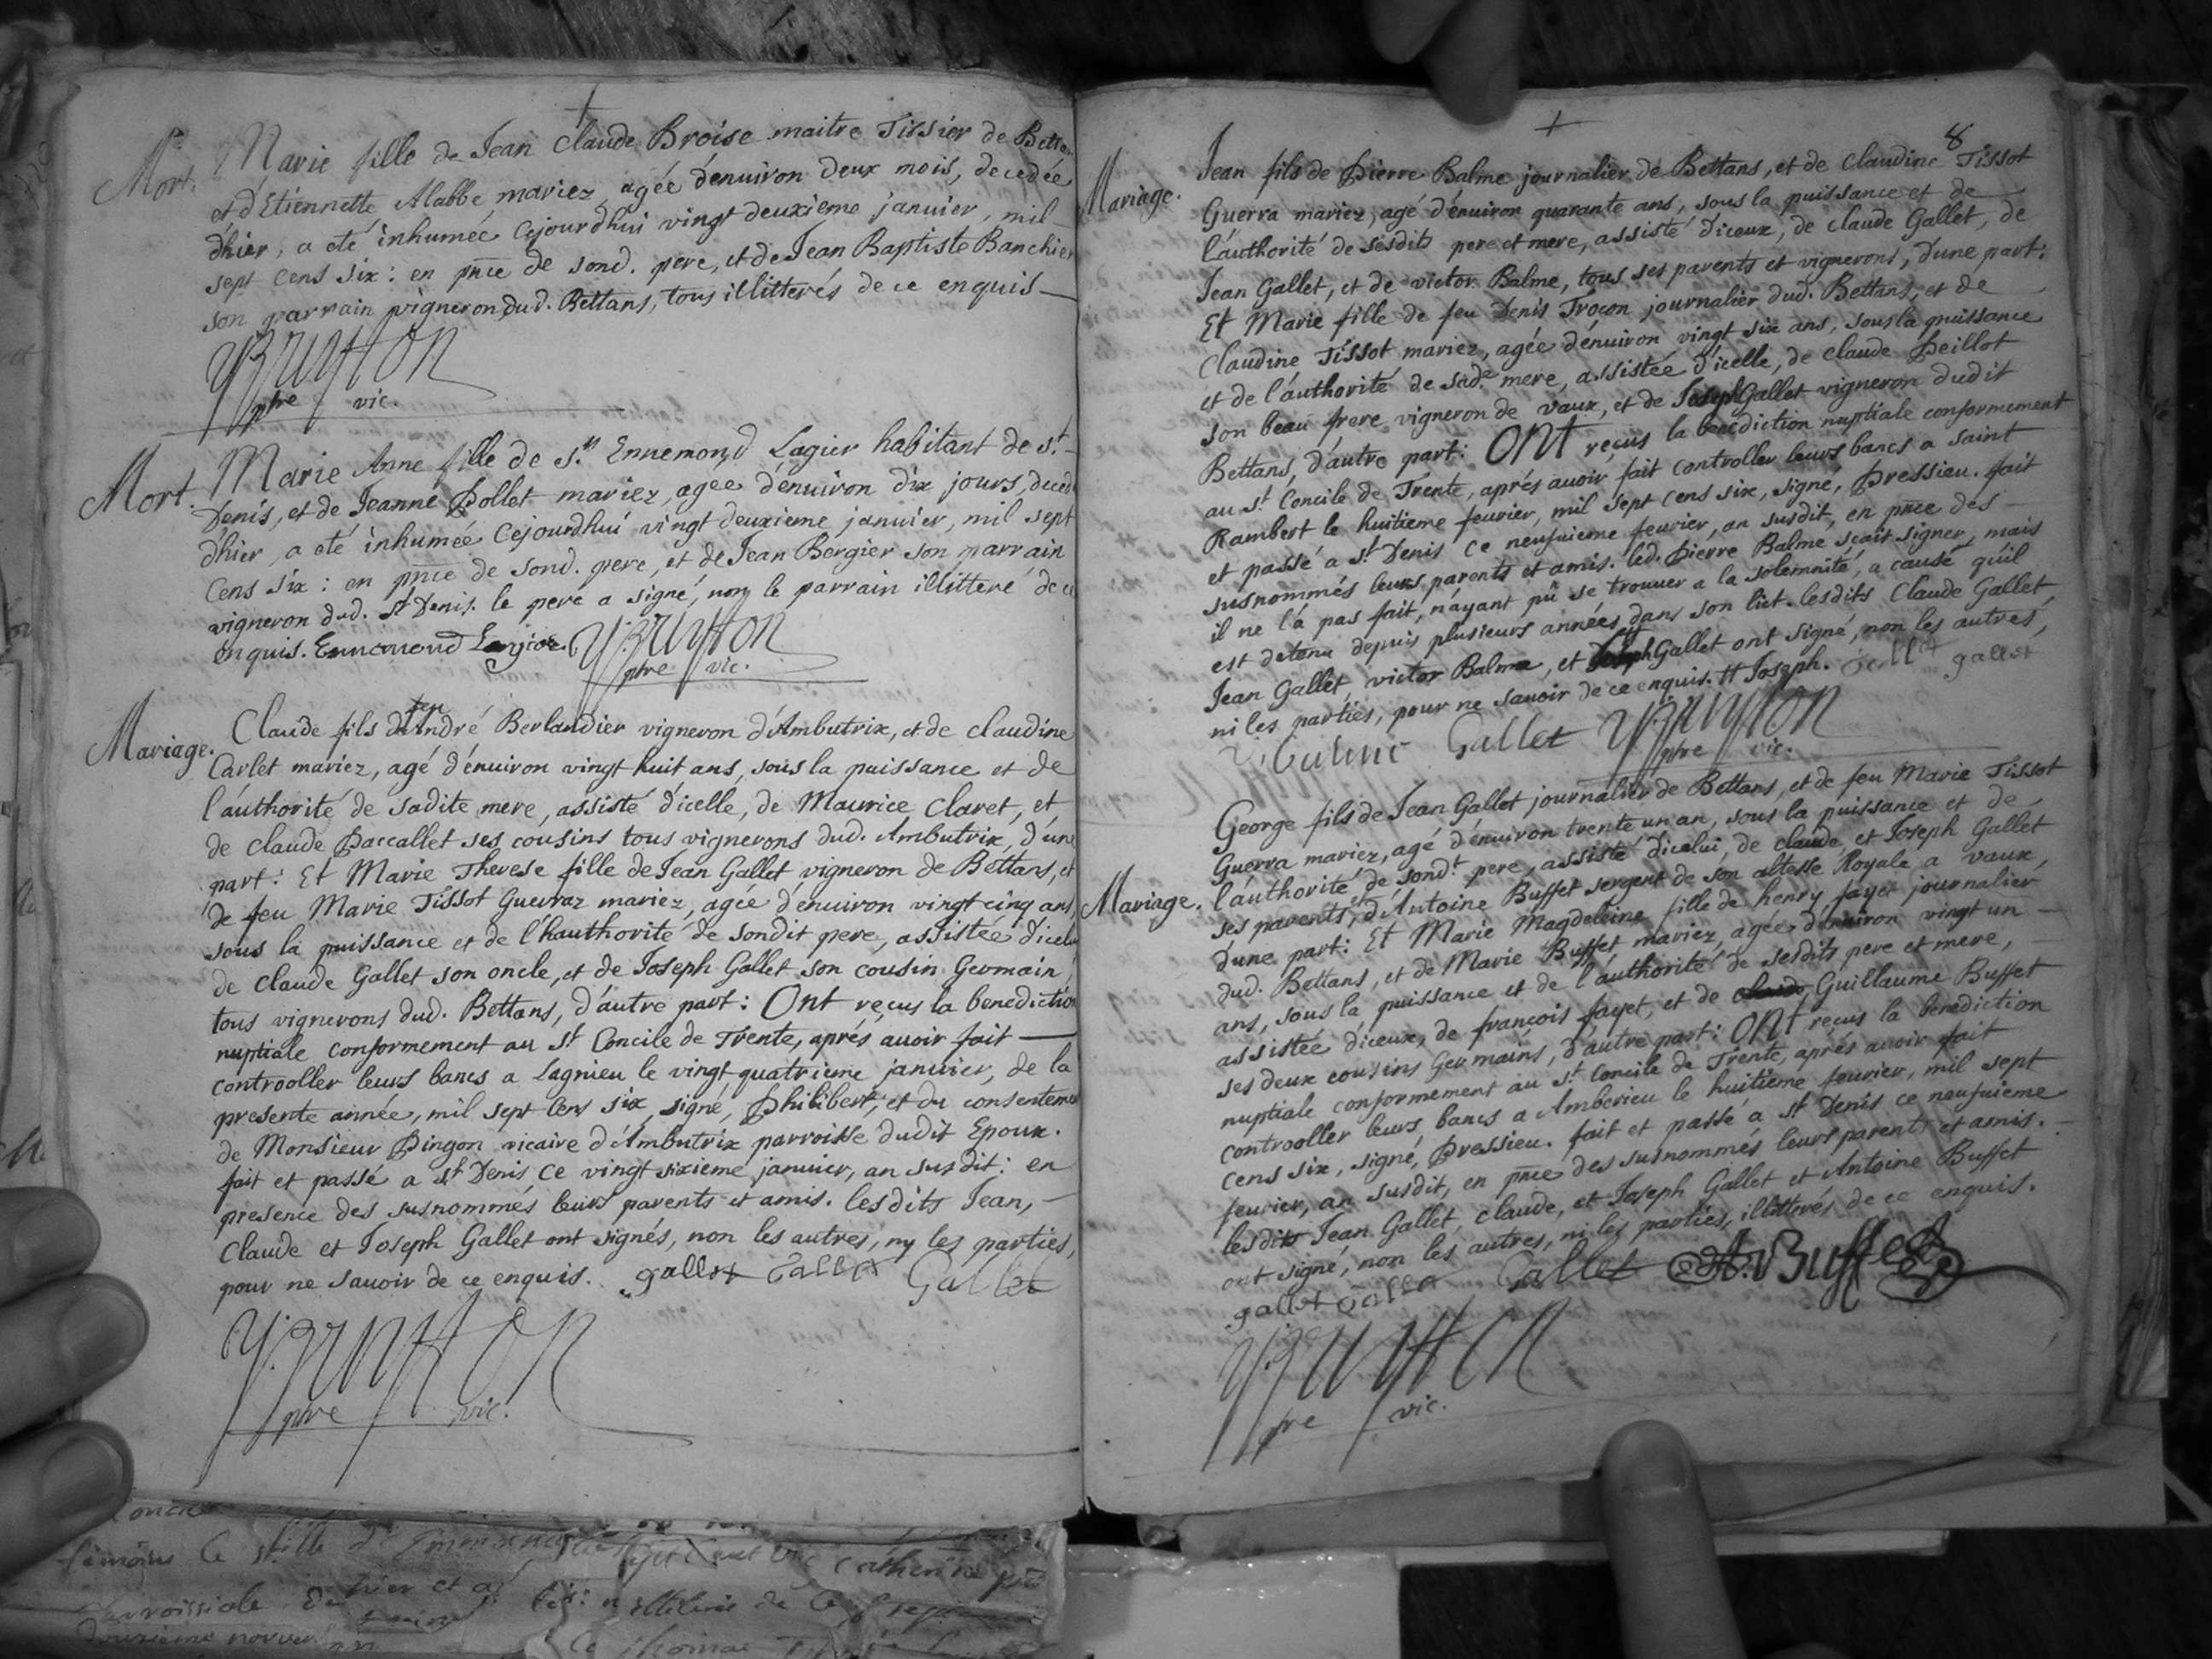 +
Mort. Marie fille de Jean Claude Broise maitre Tissier de Bettan
et d'Etiennette Alabbe mariez, agée d'enuiron deux mois, decedée
dhier, a eté inhumée cejourdhui vingt deuxieme januier, mil
sept cens six : en pn̄ce de sond. pere, et de Jean Baptiste Banchier
son parrain vigneron dud. Bettans, tous illitterés de ce enquis
pbre vic.
Mort. Marie Anne fille de Sr. Ennemond Lagier habitant de St.
Denis, et de Jeanne Pollet mariez, agée d'enuiron dix jours, deced
dhier, a eté inhumée cejourdhui vingt deuxieme januier, mil sept
cens six : en pn̄ce de sond. pere, et de Jean Bergier son parrain
vigneron dud. St Denis. le pere a signé, non le parrain illitteré de ce
enquis. Ennemond Lagier
pbre vic.
Mariage. Claude fils d'feu André Berlandier vigneron d'Ambutrix, et de claudine
Carlet mariez, agé d'enuiron vingt huit ans, sous la puissance et de
l'authorité de sadite mere, assisté d'icelle, de Maurice Claret, et
de claude Paccallet ses cousins tous vignerons dud. Ambutrix, d'une
part : Et Marie Therese fille de Jean Gallet vigneron de Bettans, et
de feu Marie Tissot Guerraz mariez, agée d'enuiron vingt cinq ans,
sous la puissance et de l'hauthorité de sondit pere, assistée d'icelui
de claude Gallet son oncle, et de Joseph Gallet son cousin Germain,
tous vignerons dud. Bettans, d'autre part : Ont reçus la benediction
nuptiale conformement au St Concile de Trente, aprés auoir fait
controoller leurs bancs a Lagnieu le vingt quatrieme januier, de la
presente année, mil sept cens six, signé, Philibert, et du consenteme
de Monsieur Pingon vicaire d'Ambutrix parroisse dudit Epoux.
fait et passé a St Denis ce vingt sixieme januier, an susdit : en
presence des susnommés leurs parents et amis. lesdits Jean,
Claude et Joseph Gallet ont signés, non les autres, ny les parties,
pour ne sauoir de ce enquis. gallet Gallet Gallet
pbre vic.
+
8
Mariage. Jean fils de Pierre Balme journalier de Bettans, et de Claudine Tissot
Guerra mariez, agé d'enuiron quarante ans, sous la puissance et de
l'authorité de sesdits pere et mere, assisté d'iceux, de claude Gallet, de
Jean Gallet, et de victor Balme, tous ses parents et vignerons, d'une part :
Et Marie fille de feu Denis Troçon journalier dud. Bettans, et de
Claudine Tissot mariez, agée d'enuiron vingt six ans, sous la puissance
et de l'authorité de sade. mere, assistée d'icelle, de claude Peillot
son beau frere vigneron de vaux, et de Joseph Gallet vigneron dudit
Bettans, d'autre part : Ont reçus la benediction nuptiale conformement
au St. Concile de Trente, aprés auoir fait controller leurs bancs a saint
Rambert le huitieme feurier, mil sept cens six, signé, Pressieu. fait
et passé a St Denis ce neufuieme feurier, an susdit, en pn̄ce des
susnommés leurs parents et amis. led. Pierre Balme sçait signer, mais
il ne l'a pas fait, n'ayant pū se trouuer a la solemnité, a cause qu'il
est detenu depuis plusieurs années dans son lict. lesdits Claude Gallet,
Jean Gallet, victor Balme, et Joseph Gallet ont signé, non les autres,
ni les parties, pour ne sauoir de ce enquis. Joseph. Gallet gallet
V. balme Gallet
pbre vic.
George fils de Jean Gallet journalier de Bettans, et de feu Marie Tissot
Guerra mariez, agé d'enuiron trente un an, sous la puissance et de
Mariage. l'authorité de sondt. pere, assisté d'icelui, de claude, et Joseph Gallet
ses parents, et d'Antoine Buffet sergent de son altesse Royale a vaux,
d'une part : Et Marie Magdeleine fille de henry fayet journalier
dud. Bettans, et de Marie Buffet mariez, agée d'enuiron vingt un
ans, sous la puissance et de l'authorité de sesdits pere et mere,
assistée d'iceux, de françois fayet, et de Guillaume Buffet
ses deux cousins Germains, d'autre part : Ont reçus la benediction
nuptiale conformement au St. Concile de Trente, aprés auoir fait
controoller leurs bancs a Amberieu le huitieme feurier, mil sept
cens six, signé, Pressieu. fait et passé a St Denis ce neufuieme
feurier, an susdit, en pn̄ce des susnommés leurs parents et amis.
lesdits Jean Gallet, claude, et Joseph Gallet et Antoine Buffet
ont signé, non les autres, ni les parties, illitterés de ce enquis.
gallet Gallet Gallet A. Buffet
pbre vic.